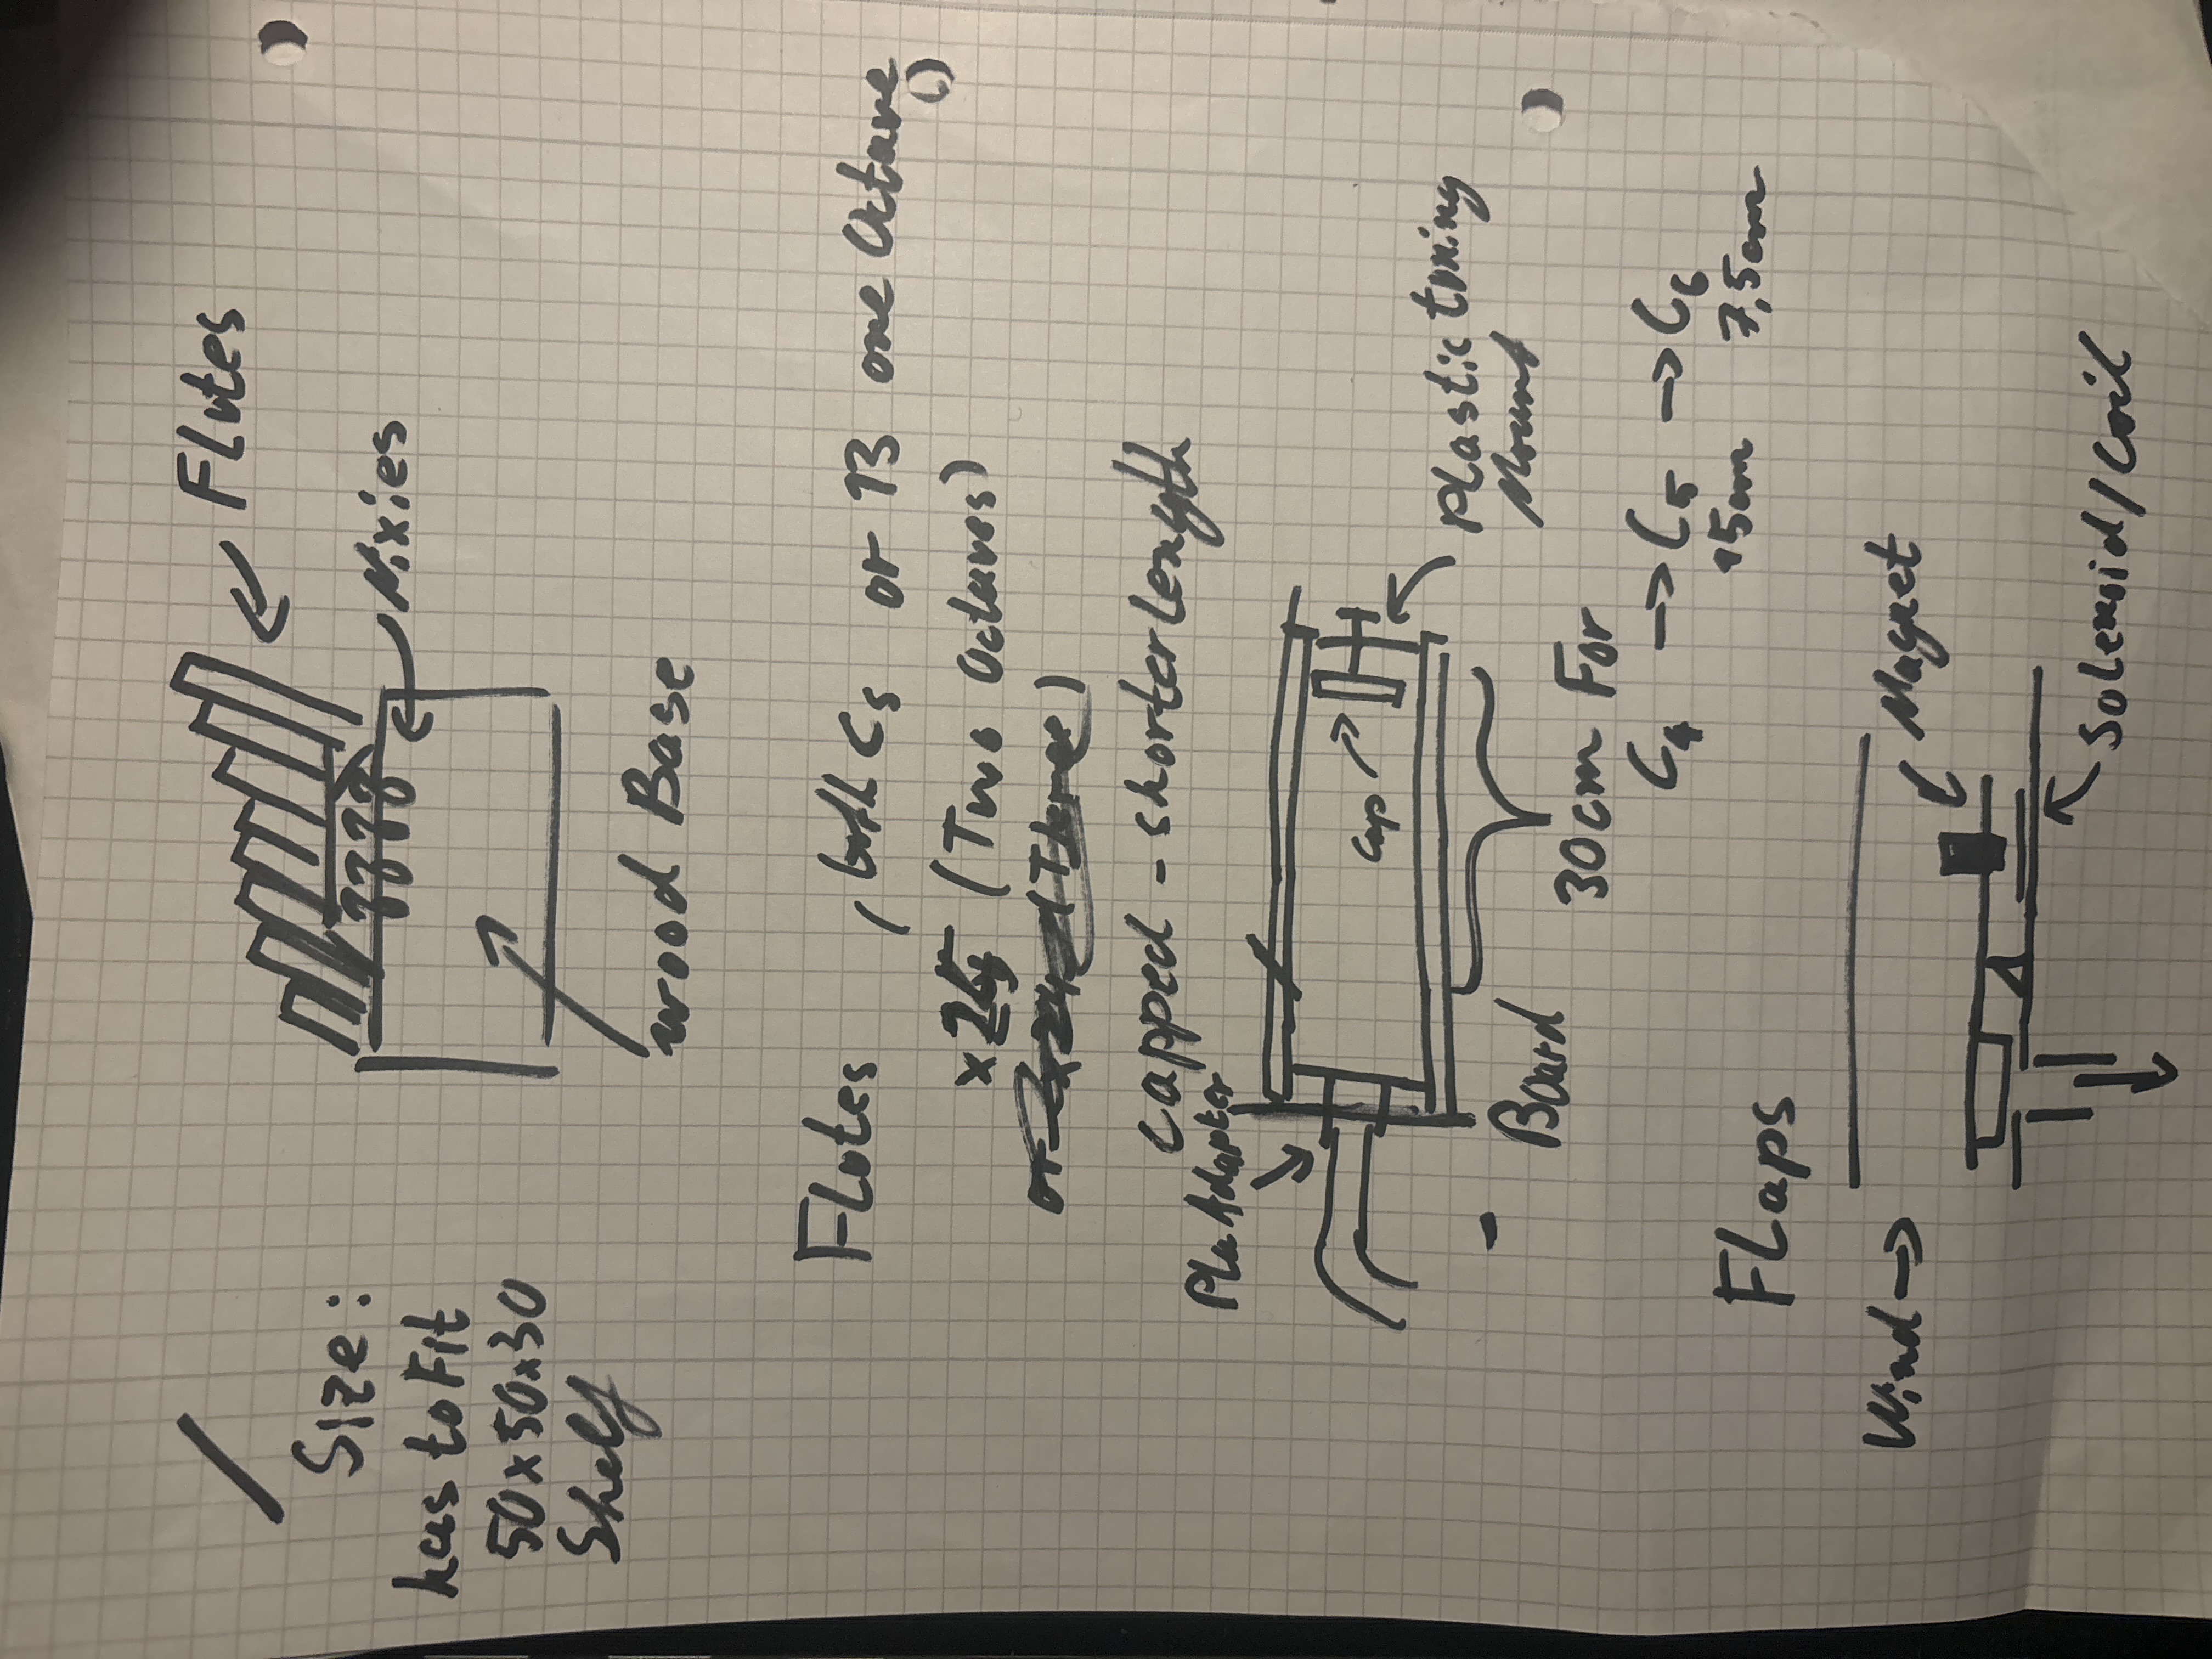 Flutes
Size:
has to Fit
50x50x30
Shelf
Nixies
wood Base
Flutes , both Cs or 13 one Octave
x25 (Two Octaves)
or x24 (Three)
capped - shorter length
Pla Adapter
Cap
Plastic tuning
Mount
Board
30cm For
C4 → C5 → C6
15cm 7,5cm
Flaps
Wind →
Magnet
Solenoid/Coil